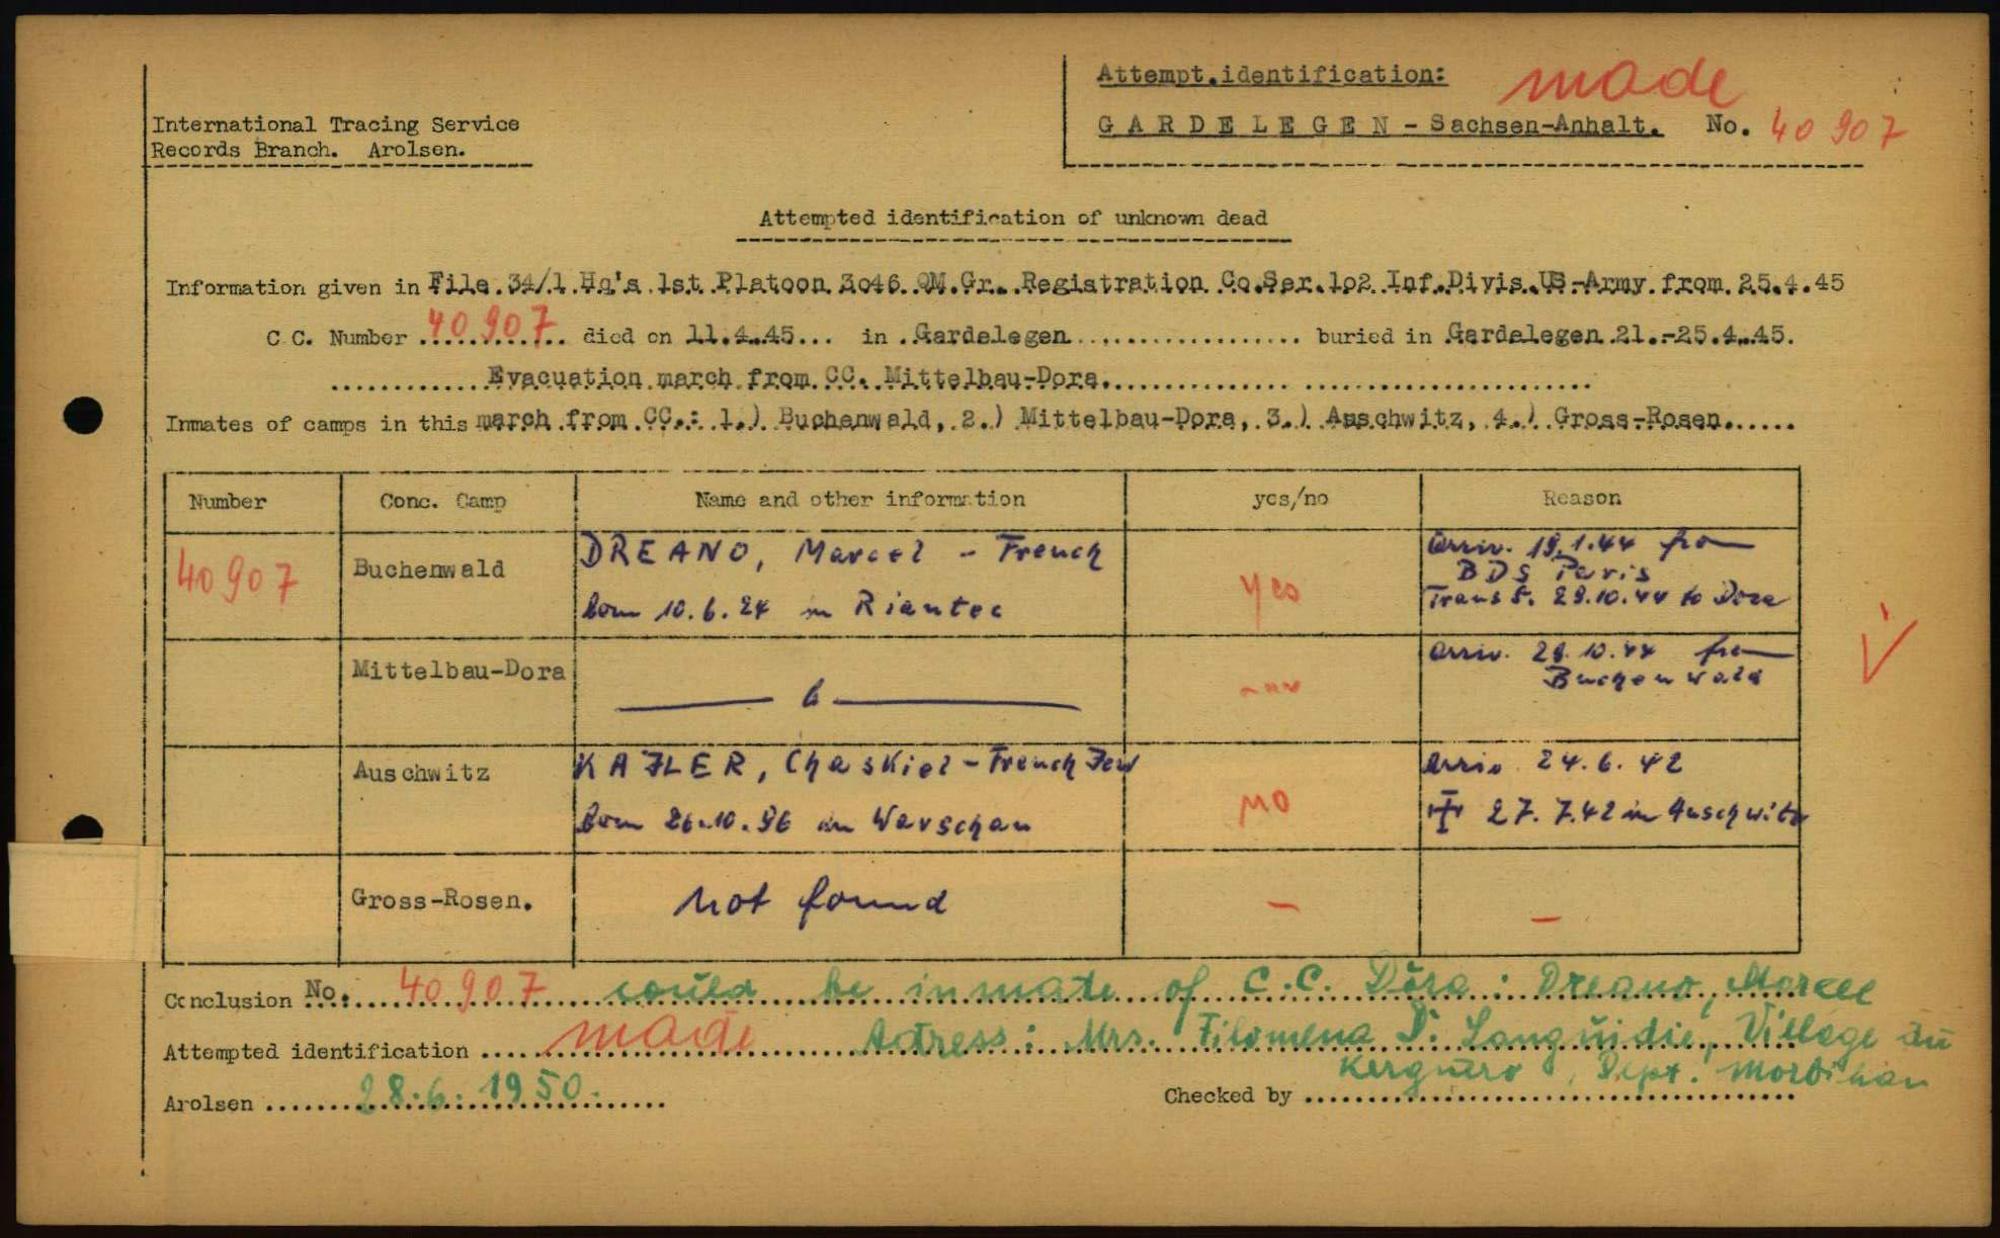 Attempt.identification: made
GARDELEGEN - Sachsen-Anhalt. No. 40 907
International Tracing Service
Records Branch. Arolsen.
Attempted identification of unknown dead
Information given in File 34/1 Hq's 1st Platoon 3046 QM.Gr. Registration Co.Ser.1o2 Inf.Divis.US-Army from 25.4.45
C.C. Number 40907 died on 11.4.45 in Gardelegen buried in Gardelegen 21.-25.4.45.
Evacuation march from CC. Mittelbau-Dora.
Inmates of camps in this march from CC.: 1.) Buchenwald, 2.) Mittelbau-Dora, 3.) Auschwitz, 4.) Gross-Rosen.
Number Conc. Camp Name and other information yes/no Reason
40907 Buchenwald DREANO, Marcel - French yes Arriv. 19.1.44 from
born 10.6.24 in Riantec BDS Paris
Transf. 28.10.44 to Dora
Mittelbau-Dora Arriv. 28.10.44 from
Buchenwald
Auschwitz Chaskiel - French Jew no Arriv 24.6.42
born 26.10.96 in Warschau 27.7.42 in Auschwitz
Gross-Rosen. not found - -
Conclusion No. 40907 could be inmate of C.C. Dora: Dreano, Marcel
Attempted identification made Adress: Mrs. Filomena D. Languidie, Village du
Dept. Morbihan
Arolsen 28.6.1950. Checked by